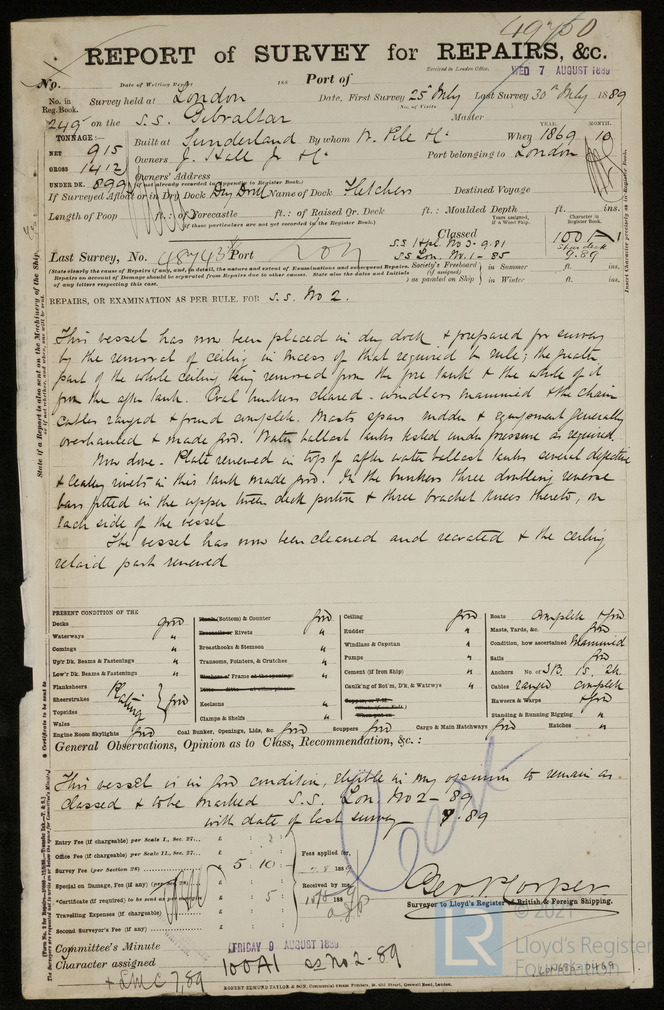 49750
REPORT of SURVEY for REPAIRS, &c.
Received in London Office, WED 7 AUGUST 1889
No. Date of Writing Report 188 Port of
No. in Reg. Book. Survey held at London Date, First Survey 25 July Last Survey 30th July 1889
(No. of Visits )
249 on the S.S. Gibraltar Master
TONNAGE:—
NET 915
GROSS 1412
UNDER DK. 899
Built at Sunderland By whom W. Pile & Co When 1869 MONTH. 10
Owners J. Hall Jr & Co Port belonging to London
Owners' Address
(if not already recorded in Appendix to Register Book.)
If Surveyed Afloat or in Dry Dock Dry Dock Name of Dock Fletchers Destined Voyage
Length of Poop ft.: of Forecastle ft.: of Raised Qr. Deck ft.: Moulded Depth ft. ins.
(if these particulars are not yet recorded in the Register Book.)
Years assigned, if a Wood Ship. Character in Register Book.
Classed 100A1
Last Survey, No. 48743 Port Lon
S.S. No 3 - 9.81
S.S. Lon. No. 1 - 85
9.89
(State clearly the cause of Repairs, if any, and, in detail, the nature and extent of Examinations and subsequent Repairs. Repairs on account of Damage should be separated from Repairs due to other causes. State also the dates and Initials of any letters respecting this case.
Society's Freeboard (if assigned) as painted on Ship in Summer ft. ins.
in Winter ft. ins.
REPAIRS, OR EXAMINATION AS PER RULE, FOR S.S. No 2.
This vessel has now been placed in dry dock & prepared for survey
by the removal of ceiling in excess of that required by rule; the greater
part of the whole ceiling being removed from the fore tank & the whole of it
from the after tank. Coal bunkers cleared - windlass examined & the chain
cables ranged & found complete. Masts spars rudder & equipment generally
overhauled & made good. Water ballast tanks tested under pressure as required
Now done. Plate renewed in top of after water ballast tanks several defective
& leaky rivets in this tank made good. In the bunkers three doubling reverse
bars fitted in the upper tween deck portion & three bracket knees thereto, on
each side of the vessel
The vessel has now been cleaned and recoated & the ceiling
relaid part renewed
PRESENT CONDITION OF THE
Decks good
Waterways "
Comings "
Up'r Dk. Beams & Fastenings "
Low'r Dk. Beams & Fastenings "
Planksheers
Sheerstrakes
Topsides
Wales
Plating good
Engine Room Skylights good
(Bottom) & Counter good
Rivets "
Breasthooks & Stemson "
Transoms, Pointers, & Crutches "
Keelsons "
Clamps & Shelfs "
Coal Bunker, Openings, Lids, &c. good
Ceiling good
Rudder "
Windlass & Capstan "
Pumps "
Cement (if Iron Ship) "
Caulk'ng of Bot'm, D'k, & Watrwys "
Scuppers good
Cargo & Main Hatchways good
Boats Complete & good
Masts, Yards, &c. good
Condition, how ascertained Examined
Sails good
Anchors No. of 3B. 1S. 2K.
Cables ranged complete
Hawsers & Warps & good
Standing & Running Rigging "
Hatches "
General Observations, Opinion as to Class, Recommendation, &c.:
This vessel is in good condition, eligible in my opinion to remain as
classed & to be marked S.S. Lon. No 2 - 89
with date of last survey - 7.89
Entry Fee (if chargeable) per Scale I., Sec. 27... £
Office Fee (if chargeable) per Scale II., Sec. 27... £
Survey Fee (per Section 28) £ 5 : 10 :
Special on Damage, Fee (if any) £
*Certificate (if required) to be sent £ : 5 :
Travelling Expenses (if chargeable) £
Second Surveyor's Fee (if any) £
Fees applied for, 188
Received by me, 188
Surveyor to Lloyd's Register of British & Foreign Shipping.
Committee's Minute FRIDAY 9 AUGUST 1889
Character assigned 100A1 ss No 2 - 89
+ LMC 7,89
ROBERT EDMUND TAYLOR & SON, Commercial Steam Printers, Old Street, Goswell Road, London.
© 2021
LR
Lloyd's Register
FOUNDATION